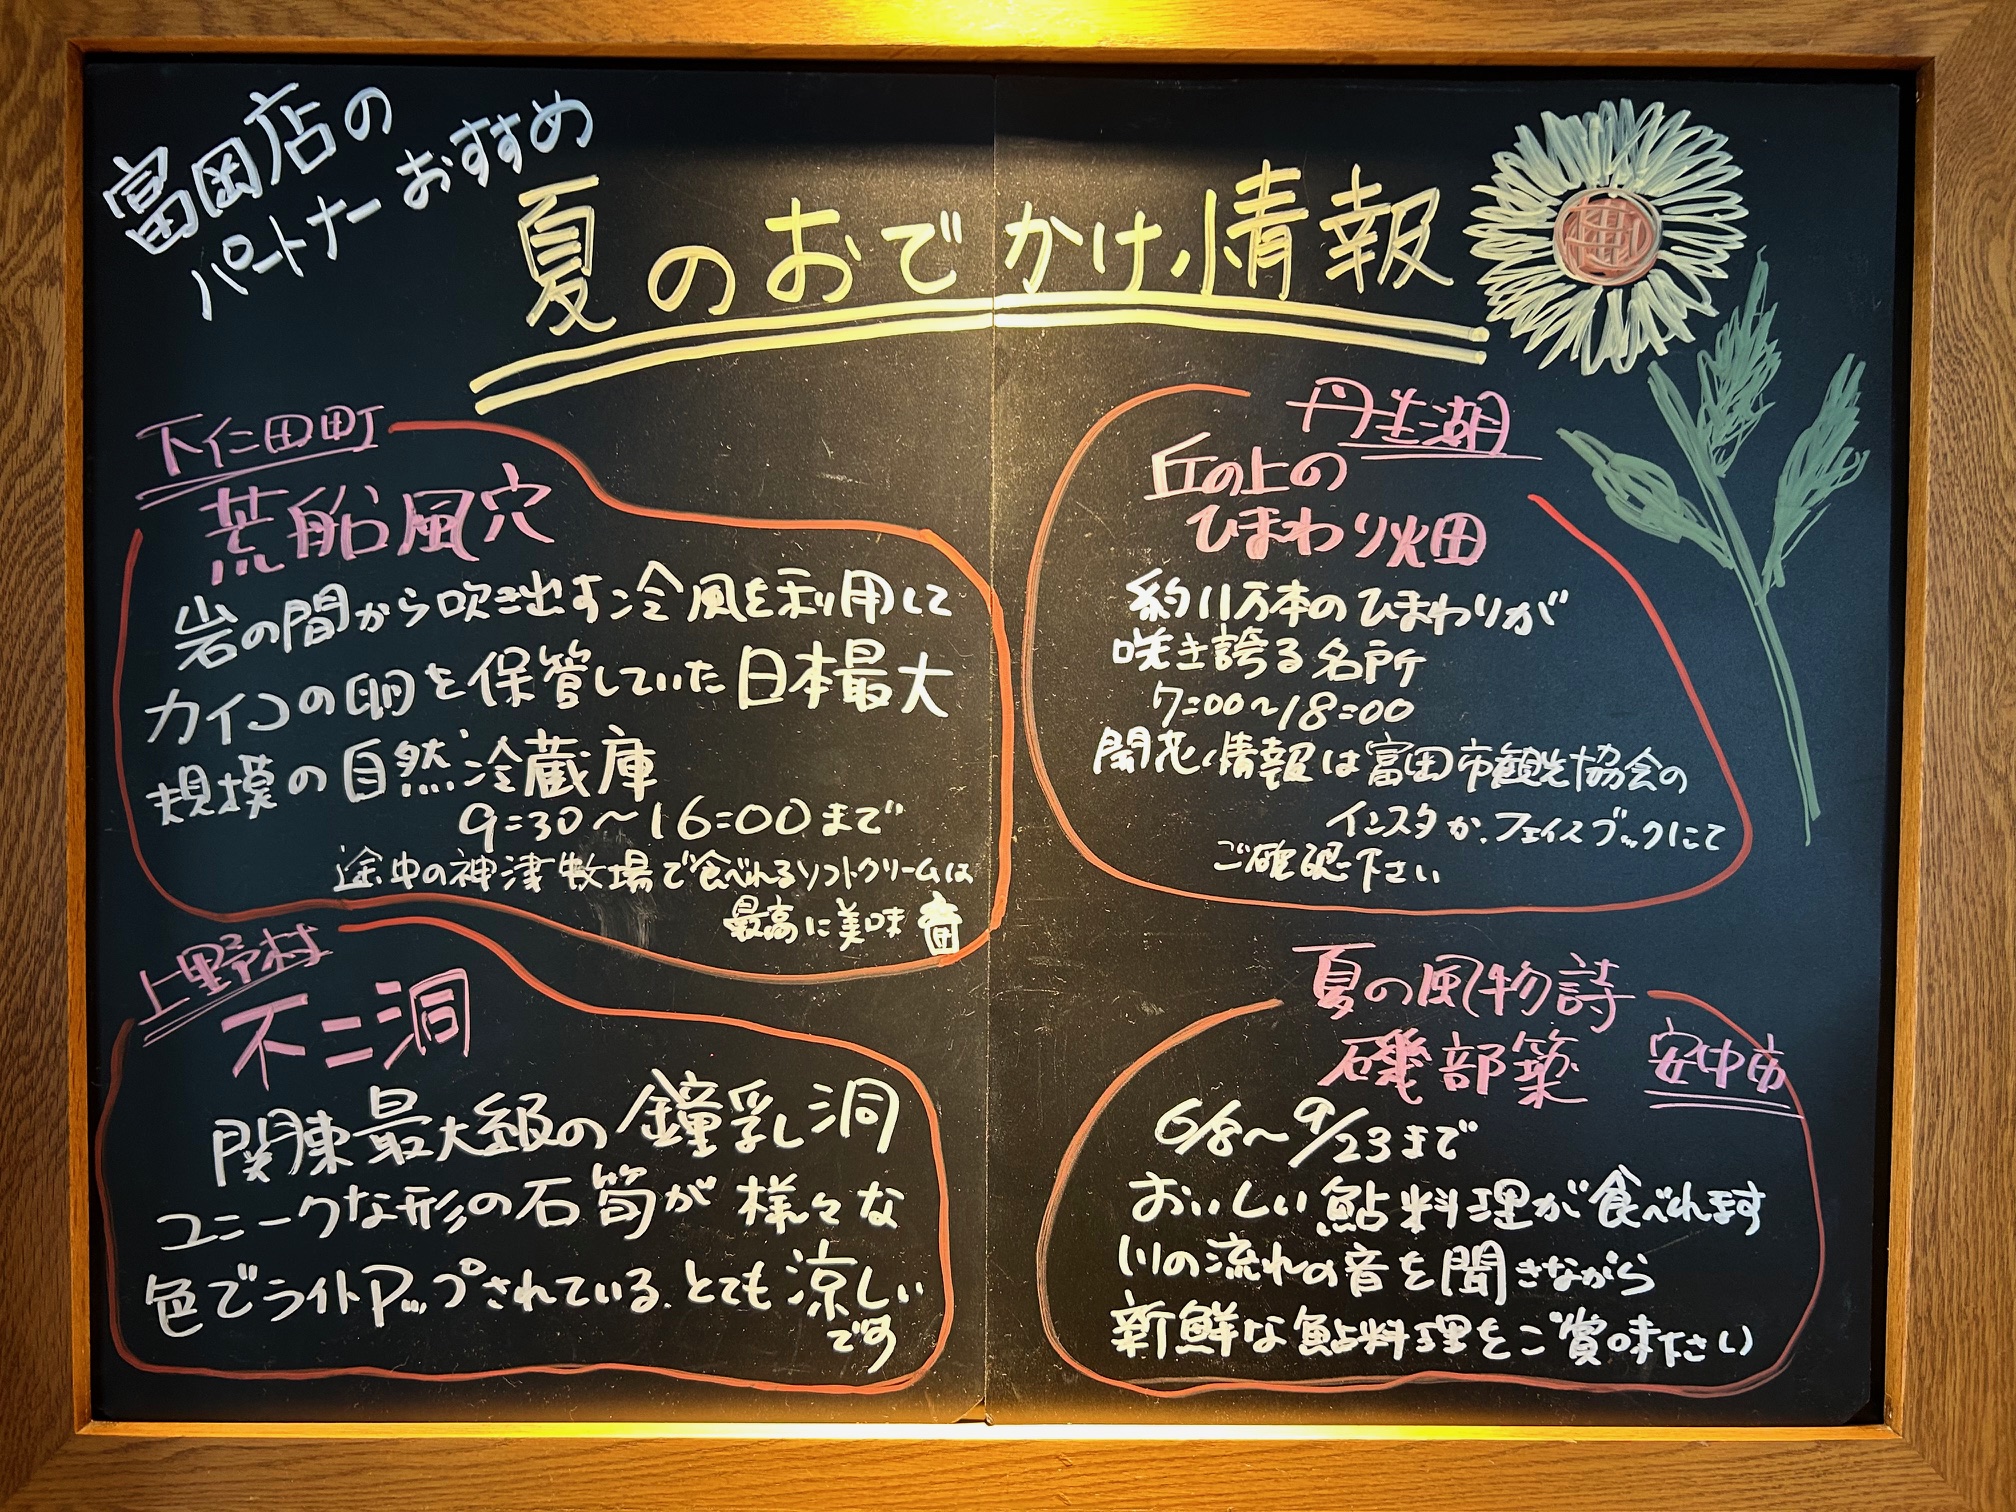 富岡店の
パートナーおすすめ
夏のおでかけ情報
下仁田町
荒船風穴
岩の間から吹き出す冷風を利用して
カイコの卵を保管していた日本最大
規模の自然冷蔵庫
9:30～16:00まで
途中の神津牧場で食べれるソフトクリームは
最高に美味
上野村
不二洞
関東最大級の鐘乳洞
ユニークな形の石筍が様々な
色でライトPップされている.とても涼しい
です
丹生湖
丘の上の
ひまわり畑
約11万本のひまわりが
咲き誇る名所
7:00～18:00
開花情報は富岡市観光協会の
インスタか、フェイスブックにて
ご確認下さい
夏の風物詩
磯部簗 安中市
6/8～9/23まで
おいしい鮎料理が食べれます
川の流れの音を聞きながら
新鮮な鮎料理をご賞味下さい